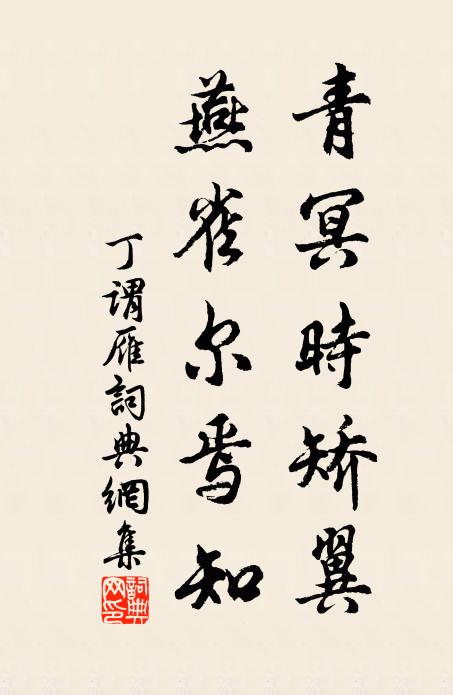 青冥時矯翼
燕雀尔焉知
丁谓雁詞典網集
詞典网印